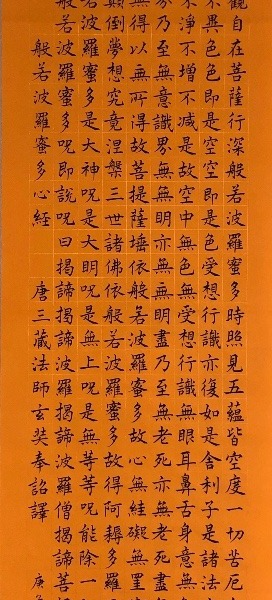 觀自在菩薩行深般若波羅蜜多時照見五蘊皆空度一切苦厄
不異色色即是空空即是色受想行識亦復如是舍利子是諸法
不淨不增不減是故空中無色無受想行識無眼耳鼻舌身意無
界乃至無意識界無無明亦無無明盡乃至無老死亦無老死盡
無得以無所得故菩提薩埵依般若波羅蜜多故心無罣礙無罣
顛倒夢想究竟涅槃三世諸佛依般若波羅蜜多故得阿耨多羅
般若波羅蜜多是大神呪是大明呪是無上呪是無等等呪能除一
般若波羅蜜多呪即說呪曰揭諦揭諦波羅揭諦波羅僧揭諦菩
般若波羅蜜多心經 唐三藏法師玄奘奉詔譯 庚